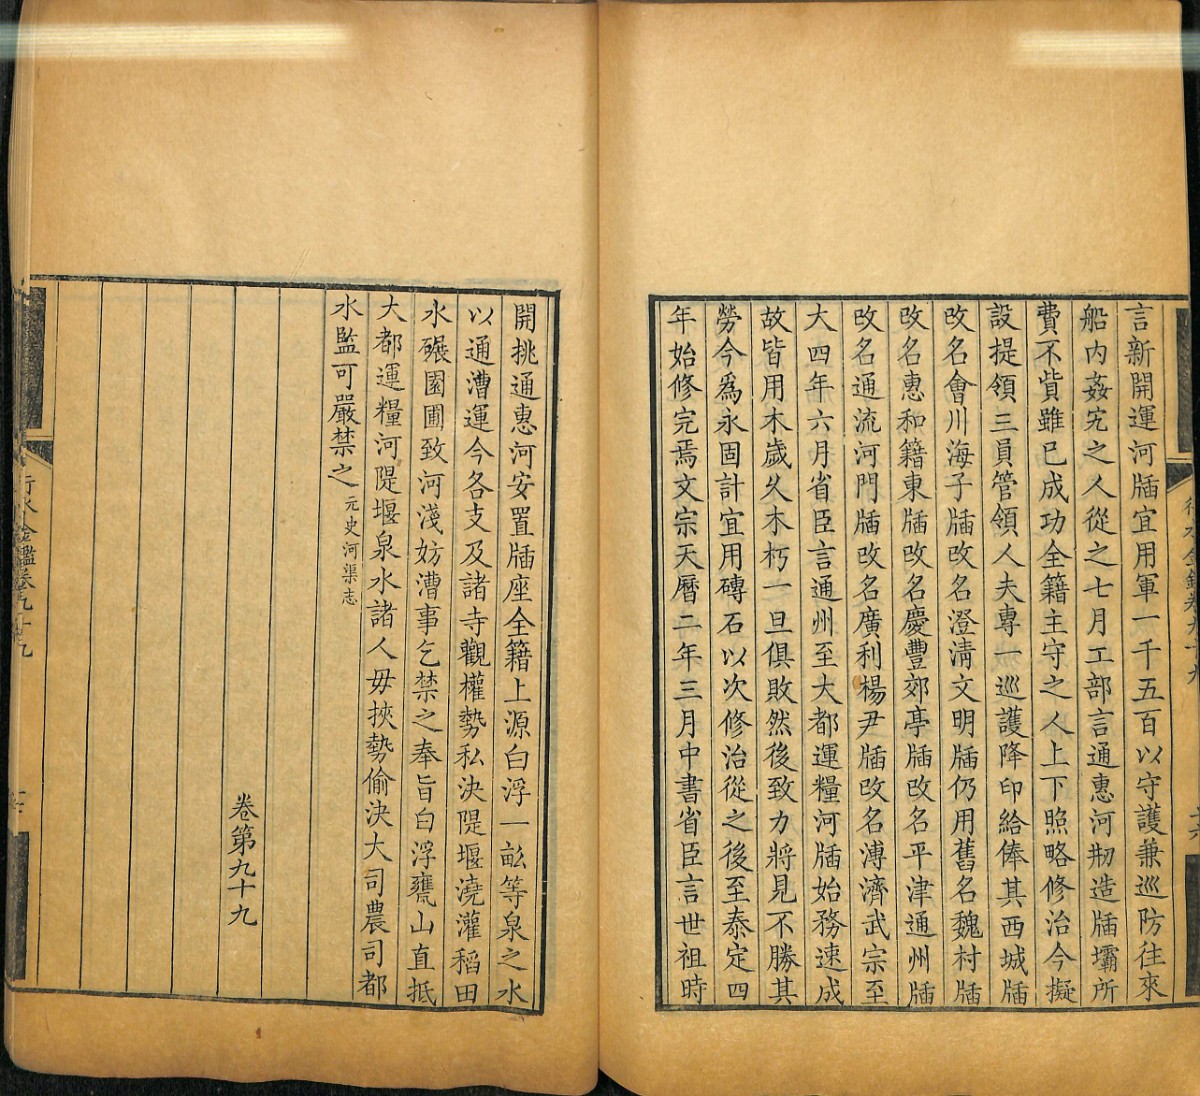 言新開運河牐宜用軍一千五百以守護兼巡防往來
船内姦宄之人從之七月工部言通惠河刱造牐壩所
費不貲雖已成功全籍主守之人上下照略修治今擬
設提領三員管領人夫專一巡護降印給俸其西城牐
改名會川海子牐改名澄淸文明牐仍用舊名魏村牐
改名惠和籍東牐改名慶豐郊亭牐改名平津通州牐
改名通流河門牐改名廣利楊尹牐改名溥濟武宗至
大四年六月省臣言通州至大都運糧河牐始務速成
故皆用木歲久木朽一旦俱敗然後致力將見不勝其
勞今爲永固計宜用磚石以次修治從之後至泰定四
年始修完焉文宗天曆二年三月中書省臣言世祖時
開挑通惠河安置牐座全籍上源白浮一畝等泉之水
以通漕運今各支及諸寺觀權勢私決隄堰澆灌稻田
水碾園圃致河淺妨漕事乞禁之奉旨白浮甕山直抵
大都運糧河隄堰泉水諸人毋挾勢偷決大司農司都
水監可嚴禁之 元史河渠志
卷第九十九
行水金鑑卷九十九